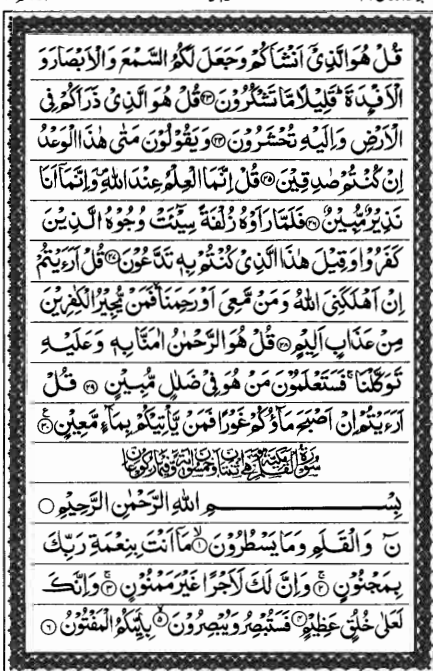 قُلْ هُوَ الَّذِيْٓ اَنْشَاَكُمْ وَجَعَلَ لَكُمُ السَّمْعَ وَالْاَبْصَارَ وَ
الْاَفْـِٕدَةَ ؕ قَلِيْلًا مَّا تَشْكُرُوْنَ ۝۲۳ قُلْ هُوَ الَّذِيْ ذَرَاَكُمْ فِي
الْاَرْضِ وَاِلَيْهِ تُحْشَرُوْنَ ۝۲۴ وَيَقُوْلُوْنَ مَتٰى هٰذَا الْوَعْدُ
اِنْ كُنْتُمْ صٰدِقِيْنَ ۝۲۵ قُلْ اِنَّمَا الْعِلْمُ عِنْدَ اللّٰهِ ۪ وَاِنَّمَآ اَنَا
نَذِيْرٌ مُّبِيْنٌ ۝۲۶ فَلَمَّا رَاَوْهُ زُلْفَةً سِيْٓـَٔتْ وُجُوْهُ الَّذِيْنَ
كَفَرُوْا وَقِيْلَ هٰذَا الَّذِيْ كُنْتُمْ بِهٖ تَدَّعُوْنَ ۝۲۷ قُلْ اَرَءَيْتُمْ
اِنْ اَهْلَكَنِيَ اللّٰهُ وَمَنْ مَّعِيَ اَوْ رَحِمَنَا ۙ فَمَنْ يُّجِيْرُ الْكٰفِرِيْنَ
مِنْ عَذَابٍ اَلِيْمٍ ۝۲۸ قُلْ هُوَ الرَّحْمٰنُ اٰمَنَّا بِهٖ وَعَلَيْهِ
تَوَكَّلْنَا ۚ فَسَتَعْلَمُوْنَ مَنْ هُوَ فِيْ ضَلٰلٍ مُّبِيْنٍ ۝۲۹ قُلْ
اَرَءَيْتُمْ اِنْ اَصْبَحَ مَآؤُكُمْ غَوْرًا فَمَنْ يَّاْتِيْكُمْ بِمَآءٍ مَّعِيْنٍ ۝۳۰
بِسْمِ اللّٰهِ الرَّحْمٰنِ الرَّحِيْمِ ۝
نٓ وَالْقَلَمِ وَمَا يَسْطُرُوْنَ ۝۱ۙ مَآ اَنْتَ بِنِعْمَةِ رَبِّكَ
بِمَجْنُوْنٍ ۝۲ۚ وَاِنَّ لَكَ لَاَجْرًا غَيْرَ مَمْنُوْنٍ ۝۳ۚ وَاِنَّكَ
لَعَلٰى خُلُقٍ عَظِيْمٍ ۝۴ فَسَتُبْصِرُ وَيُبْصِرُوْنَ ۝۵ۙ بِاَيِّكُمُ الْمَفْتُوْنُ ۝۶